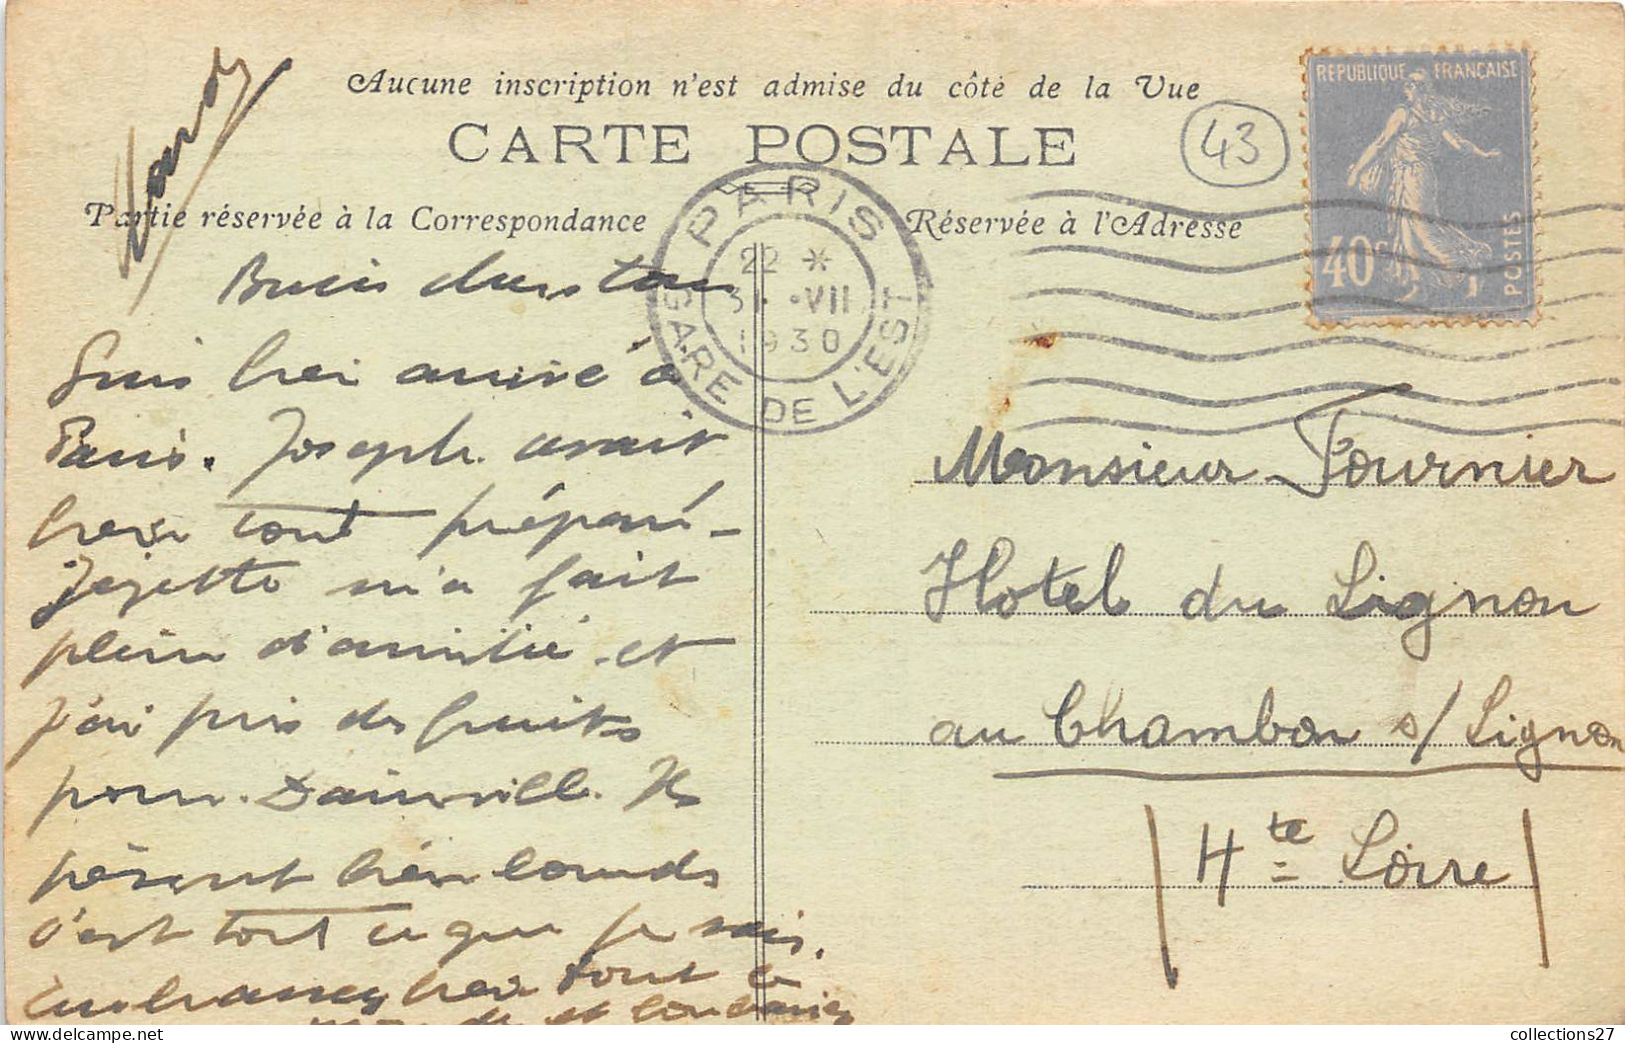 Aucune inscription n'est admise du côté de la Vue
CARTE POSTALE
43
REPUBLIQUE FRANÇAISE
40c
POSTES
Partie réservée à la Correspondance
Réservée à l'Adresse
PARIS
22 *
31 -VII
1930
GARE DE L'EST
Suis bien arrivé à
Paris. Joseph avait
bien tout préparé -
m'a fait
plein d'amitié et
j'ai pris des fruits
pour Dainville. Ils
pèsent bien lourds
c'est tout ce que je sais.
Embrassez bien tout le
monde et
Monsieur Fournier
Hotel du Lignon
au Chambon s/ Lignon
Hte Loire
collections27